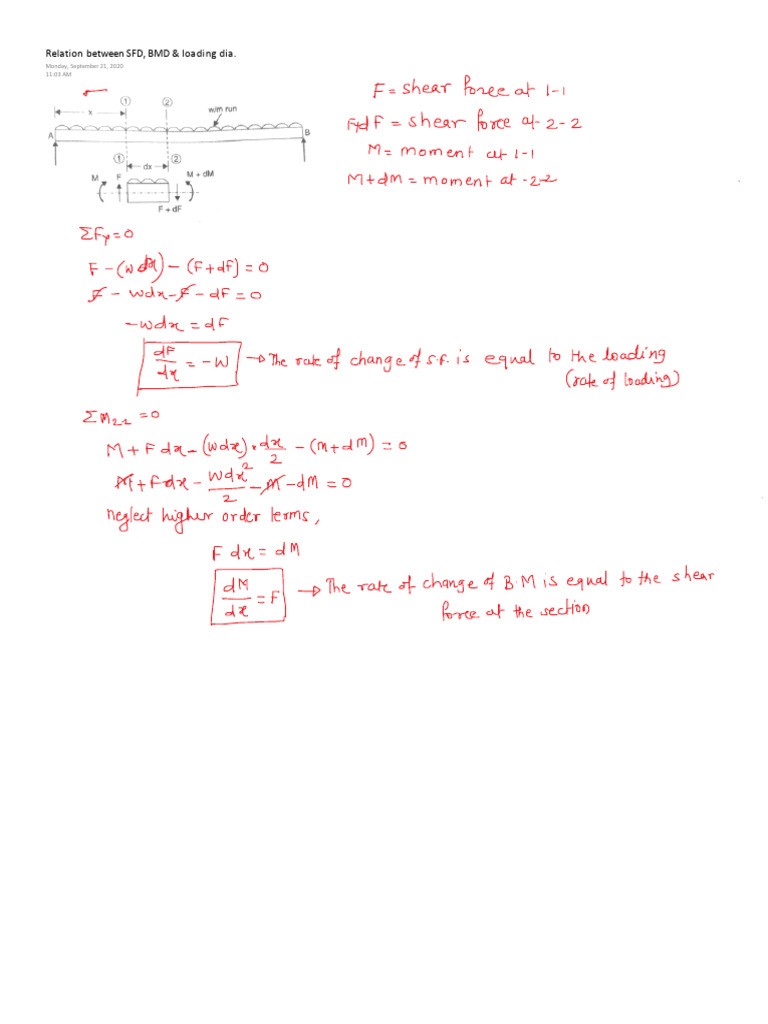 Relation between SFD, BMD & loading dia.
Monday, September 21, 2020
11:03 AM
① ②
x
w/m run
A B
① ②
dx
M F M + dM
F + dF
F = shear force at 1-1
F+dF = shear force at -2-2
M = moment at 1-1
M+dM = moment at -2-2
ΣFy=0
F-(wdx)-(F+dF)=0
F - wdx-F-dF=0
-wdx = dF
dF/dx = -W → The rate of change of S.F. is equal to the loading
(rate of loading)
ΣM2-2=0
M+Fdx-(wdx)·dx/2-(M+dM)=0
M+Fdx-wdx²/2-M-dM=0
neglect higher order terms,
F dx = dM
dM/dx = F → The rate of change of B.M is equal to the shear
force at the section